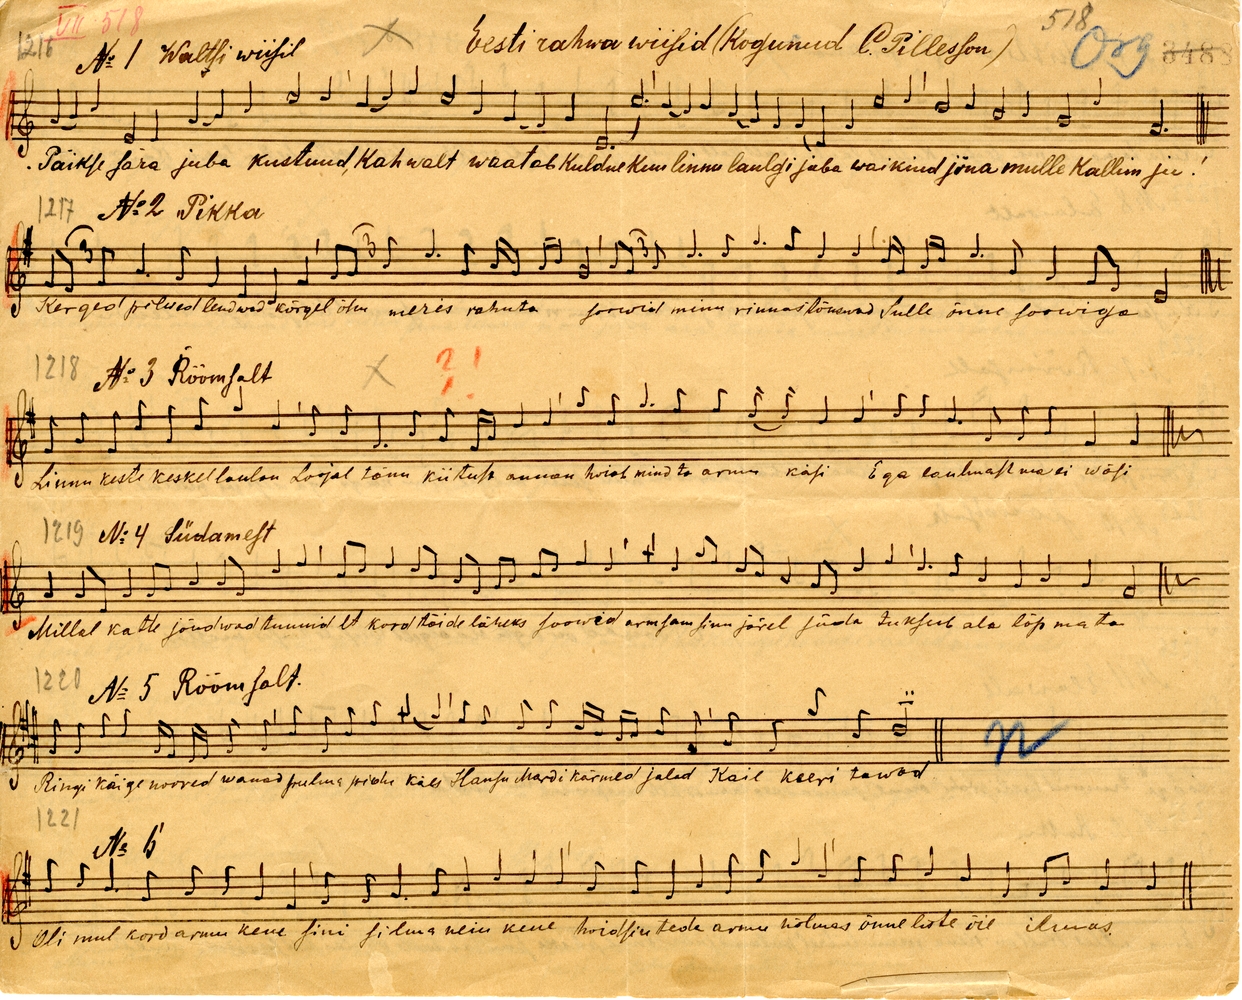 VII 518
518
Org
3488
1216
Nº 1 Waltsi wiisil
Eesti rahwa wiisid (Kogunud C. Pillesson)
Päikse sära juba kustund, Kahwalt waatab Kuldne Kuu linnu laulgi juba waikind jõua mulle Kallim sü!
1217
Nº 2 Pikka
Kerged pilwed lendwad kõrgel õhu meres rahuta soowid minu rinnas tõuswad Sulle õnne soowiga
1218
Nº 3 Rõõmsalt
?!
Linnu keste keskel laulan Loojal tänu kiitust annan hoiab mind ta armu käsi Ega laulmast ma ei wäsi
1219
Nº 4 Südamest
Millal katte jõudwad tunnid et kord täide läheks soowid armsam sinu järel süda tuksub ala lõpmata
1220
Nº 5 Rõõmsalt.
Ringi käige noored wanad pulma käes Hansu Mardi kärmed jalad Kail keeri tawad
1221
Nº 6
Oli mul kord armu kene sini silma neiu kene hoidsin teda armu hõlmas õnneliste õie ilmas.